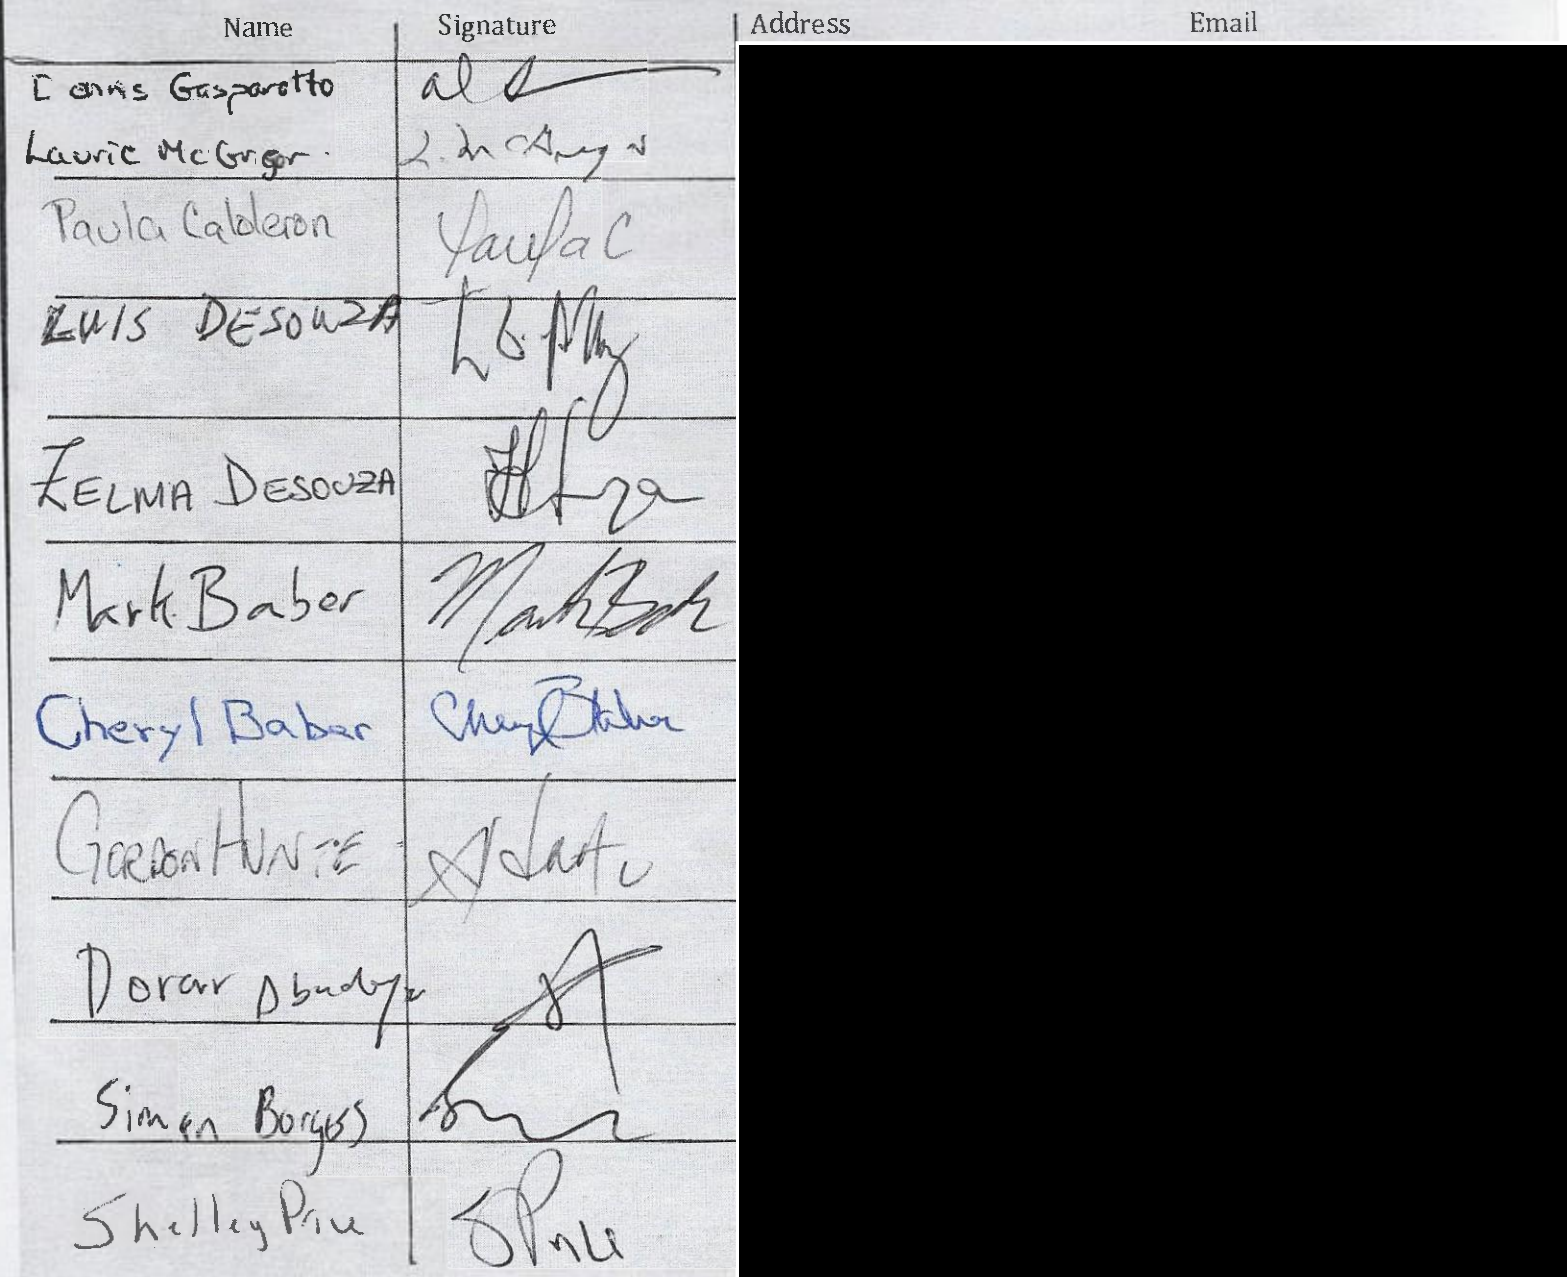 Name Signature Address Email
Dennis Gasparotto
Laurie McGregor. L. McGregor
Paula Calderon Paula C
LUIS DESOUZA
ZELMA DESOUZA
Mark Baber Mark Bab
Cheryl Baber Cheryl Baber
GORDON HUNTE
Dorar
Simon Borges
Shelley Price S Price